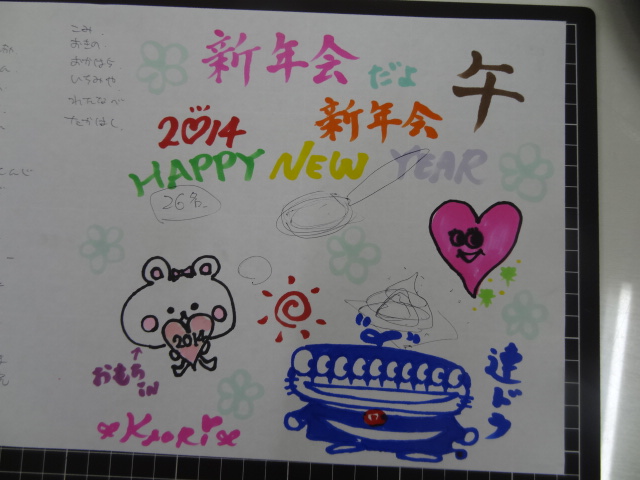 こみ
おきの
おかはら
いちみや
わたなべ
たかはし
新年会だよ
午
2014
新年会
HAPPY NEW YEAR
26名
2014
おもちin
Kaori
連ドラ